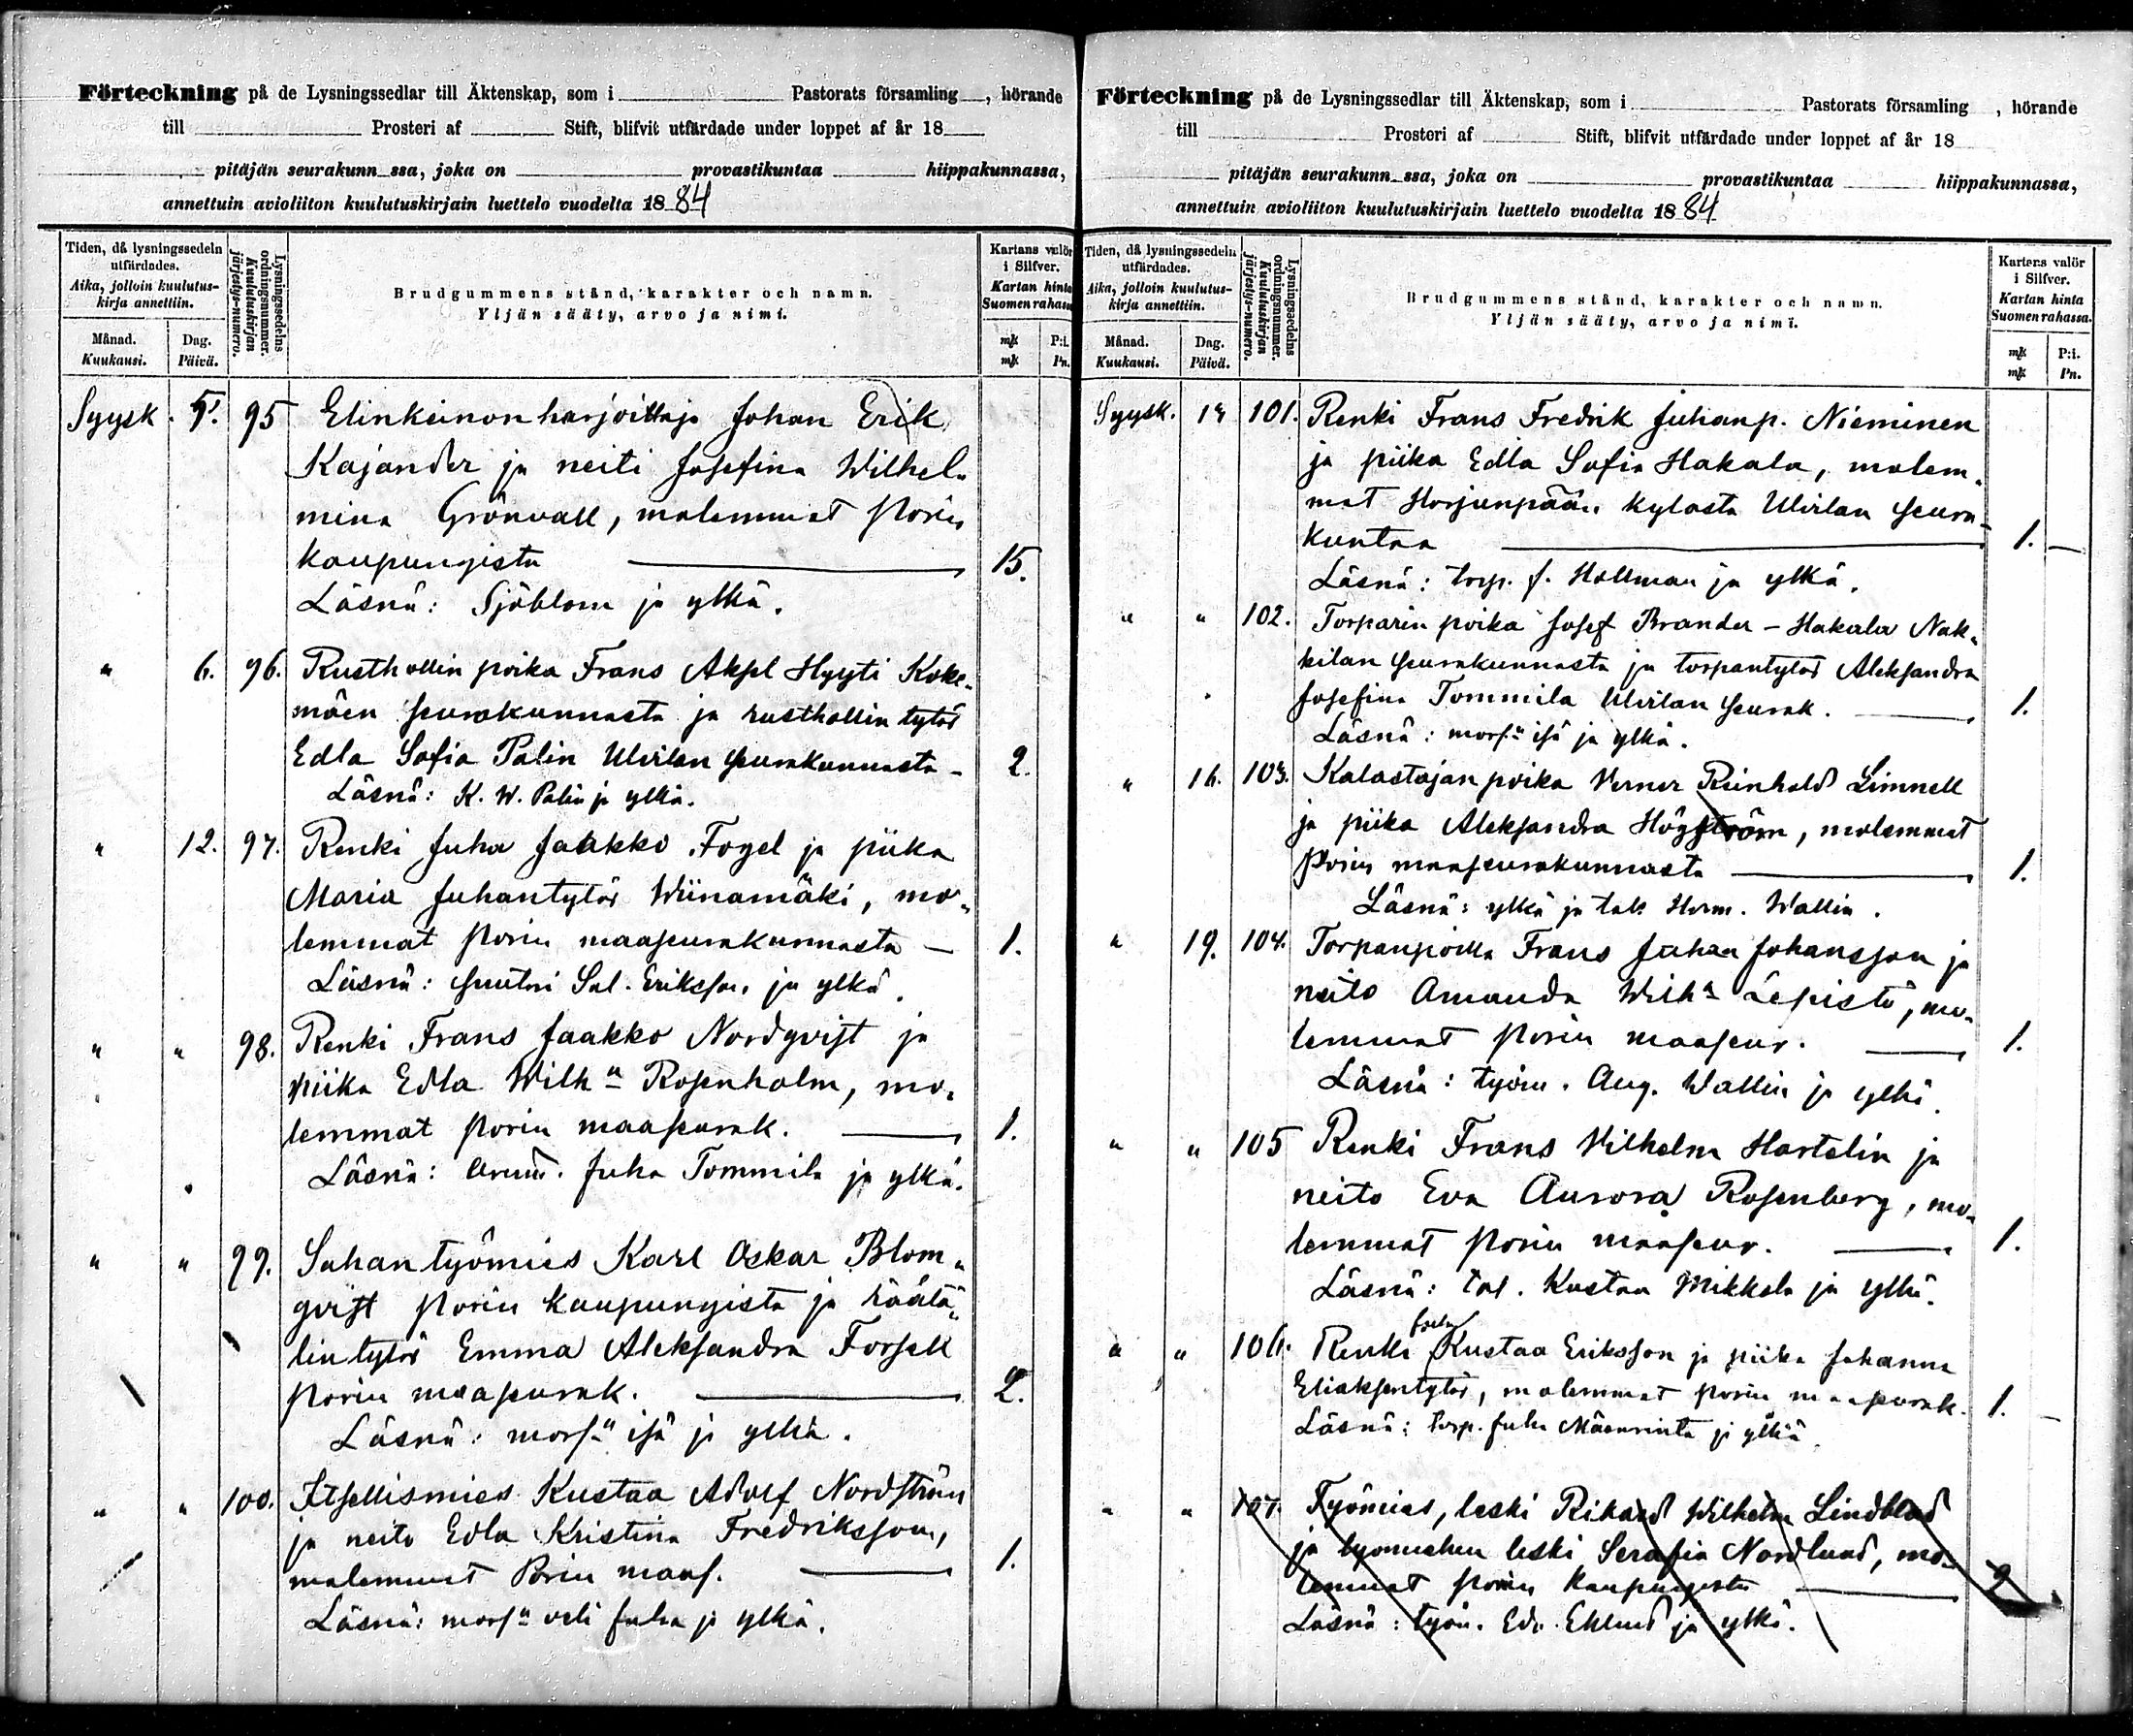 Förteckning på de Lysningssedlar till Äktenskap, som i Pastorats församling , hörande
till Prosteri af Stift, blifvit utfärdade under loppet af år 18
pitäjän seurakunn ssa, joka on provastikuntaa hiippakunnassa,
annettuin avioliiton kuulutuskirjain luettelo vuodelta 1884
Tiden, då lysningssedeln
utfärdades.
Aika, jolloin kuulutus-
kirja annettiin.
Månad.
Kuukausi.
Dag.
Päivä.
Lysningssedelns
ordningsnummer.
Kuulutuskirjan
järjestys-numero.
Brudgummens stånd, karakter och namn.
Yljän sääty, arvo ja nimi.
Kartans valör
i Silfver.
Kartan hinta
Suomen rahassa
mk P:i.
mk Pn.
Syysk. 5. 95 Elinkeinonharjoittaja Johan Erik
Kajander ja neiti Josefina Wilhel-
mina Grönvall, molemmat Porin
kaupungista 15.
Läsnä: Sjöblom ja ylkä.
" 6. 96. Rusthollin poika Frans Aksel Hyyti Koke-
mäen seurakunnasta ja rusthollin tytär
Edla Sofia Palin Ulvilan seurakunnasta - 2.
Läsnä: K. W. Palin ja ylkä.
" 12. 97. Renki Juha Jaakko Fogel ja piika
Maria Juhantytär Wiinamäki, mo-
lemmat Porin maaseurakunnasta — 1.
Läsnä: suutari Sal. Eriksson ja ylkä.
" " 98. Renki Frans Jaakko Nordqvist ja
piika Edla Wilhna Rosenholm, mo-
lemmat Porin maaseurak. 1.
Läsnä: Juha Tommila ja ylkä.
" " 99. Sahantyömies Karl Oskar Blom-
qvist Porin kaupungista ja räätä-
lintytär Emma Aleksandra Forsell
Porin maaseurak. 2.
Läsnä: mors:n isä ja ylkä.
" " 100. Itsellismies Kustaa Adolf Nordström
ja neito Edla Kristina Fredriksson,
molemmat Porin maas. 1.
Läsnä: mors:n veli Juha ja ylkä.
Förteckning på de Lysningssedlar till Äktenskap, som i Pastorats församling , hörande
till Prosteri af Stift, blifvit utfärdade under loppet af år 18
pitäjän seurakunn ssa, joka on provastikuntaa hiippakunnassa,
annettuin avioliiton kuulutuskirjain luettelo vuodelta 1884
Tiden, då lysningssedeln
utfärdades.
Aika, jolloin kuulutus-
kirja annettiin.
Månad.
Kuukausi.
Dag.
Päivä.
Lysningssedelns
ordningsnummer.
Kuulutuskirjan
järjestys-numero.
Brudgummens stånd, karakter och namn.
Yljän sääty, arvo ja nimi.
Kartans valör
i Silfver.
Kartan hinta
Suomen rahassa.
mk P:i.
mk Pn.
Syysk. 101. Renki Frans Fredrik Juhanp. Nieminen
ja piika Edla Sofia Hakala, molem-
mat Harjunpään kylästä Ulvilan seura-
kuntaa 1. —
Läsnä: torp. J. Hollman ja ylkä.
" " 102. Torparin poika Josef Brander - Hakala Nak-
kilan seurakunnasta ja torpantytär Aleksandra
Josefina Tommila Ulvilan seurak. 1.
Läsnä: mors:n isä ja ylkä.
" 16. 103. Kalastajan poika Verner Reinhold Limnell
ja piika Aleksandra Högström, molemmat
Porin maaseurakunnasta 1.
Läsnä: ylkä ja tal. Herm. Wallin.
" 19. 104. Torpanpoika Frans Juhan Johansson ja
neito Amanda Wilhna Lepistö, mo-
lemmat Porin maaseur. 1.
Läsnä: työm. Aug. Wallin ja ylkä.
" " 105 Renki Frans Vilhelm Hartelin ja
neito Eva Aurora Rosenberg, mo-
lemmat Porin maaseur. 1.
Läsnä: tal. Kustaa Mikkola ja ylkä.
" " 106. Renki Kustaa Eriksson ja piika Johanna
Eliaksentytär, molemmat Porin maaseurak. 1. —
Läsnä: torp. Juha Mäenrinta ja ylkä.
" " 107. Työmies, leski Rikard Wilhelm Lindblad
ja työmiehen leski Serafia Nordlund, mo-
lemmat Porin kaupungista 2
Läsnä: työm. Edv. Eklund ja ylkä.